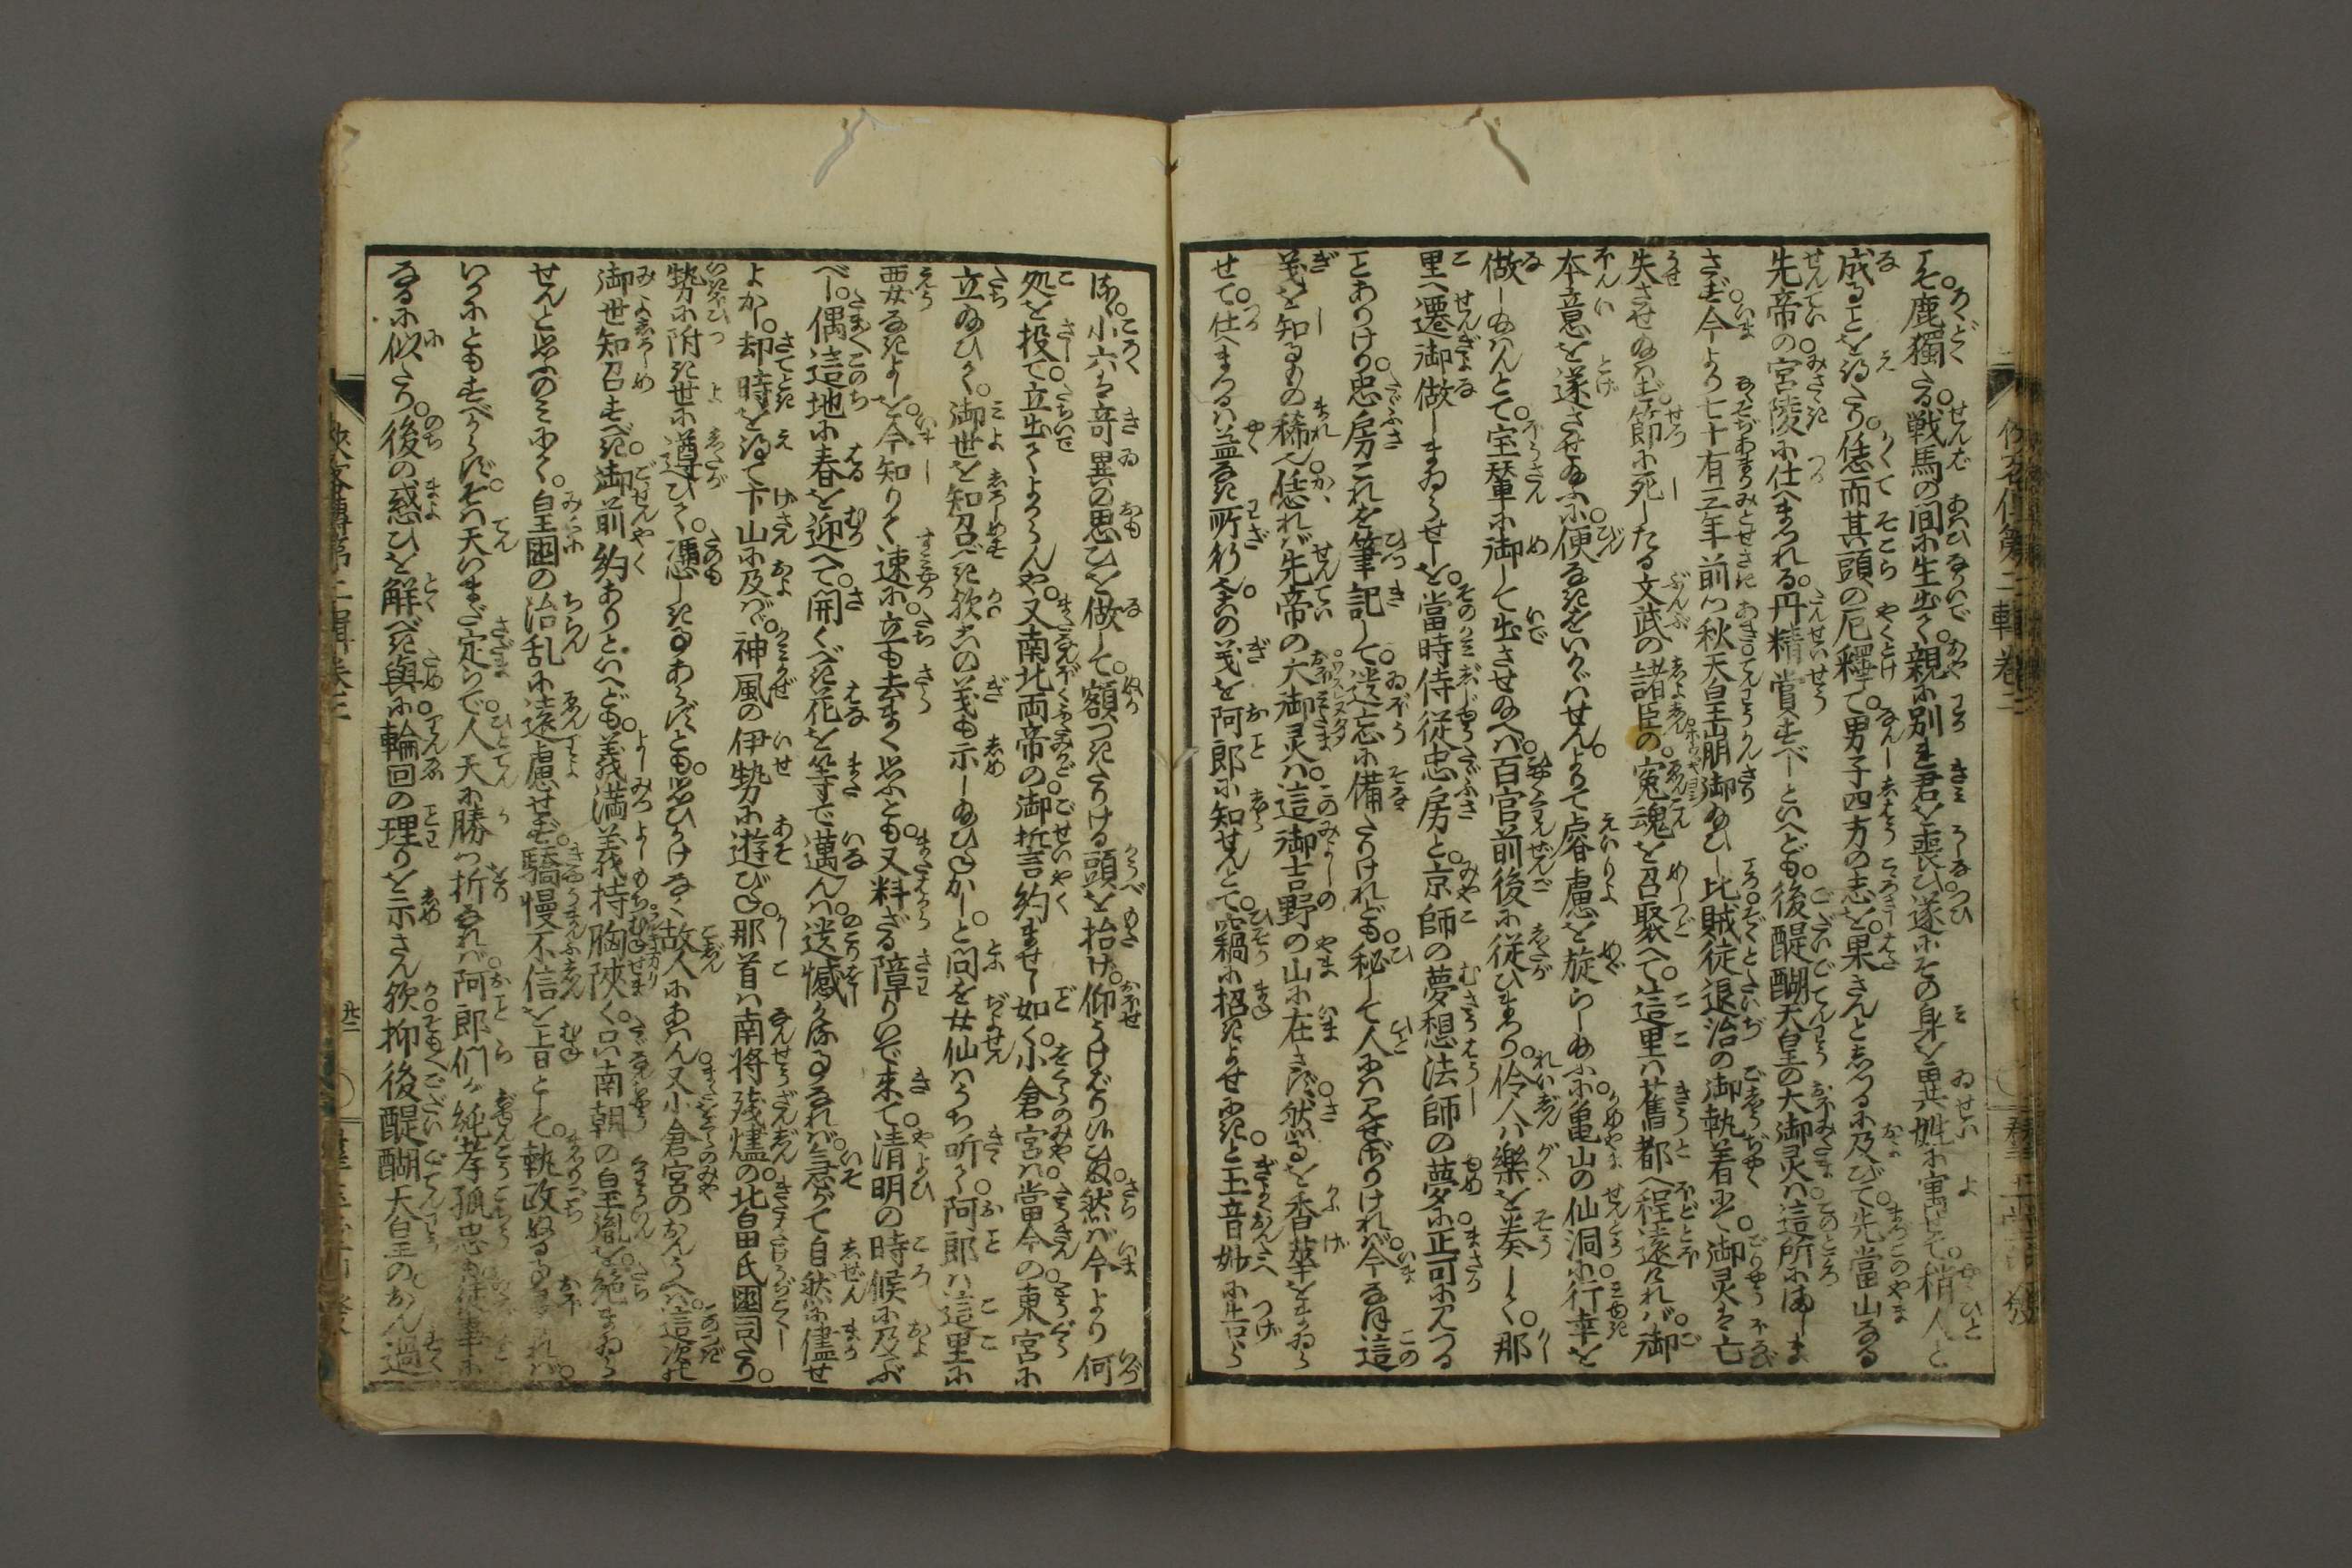 こそ。鹿獨たる。戦馬の間に生出て。親に別れ君を喪ひ。遂にその身を異姓に寓して。稍人と
成ることを得たり。恁而其頭の厄釋て。男子四方の志を。果さんとしつるに及びて。先當山なる
先帝の宮陵に仕へまつれる。丹精賞すべしといへども。後醍醐天皇の大御灵は。這所にましま
さず。今より七十有三年前つ秋。天皇崩御給ひし比。賊徒退治の御執着にて。御灵も亡
失させ給はず。節に死したる文武の諸臣の。寃魂を召聚へて。這里は舊都へ程遠ければ。御
本意を遂させ給ふに。便なきをいかゞはせん。よりて睿慮を旋らし給ふに。亀山の仙洞に行幸を
做し給はんとて。宝輦に御して出させ給へば。百官前後に従ひまつり。伶人は樂を奏して。那
里へ遷御做しまゐらせしを。當時侍従忠房と。京師の夢想法師の夢に。正可に見つる
ことありけり。忠房これを筆記して。遺忘に備たりけれども。秘して人には見せざりければ。今なほ這
義を知るもの稀也。恁れば先帝の大御灵は。這御吉野の山に在さず。然るを香華をまゐら
せて。仕へまつるは益なき所行也。この義を阿郎に知せんとて。竊に招きよせにきと。玉音妙に告ら
る。小六は奇異の思ひを做して。額つきたりける頭を抬け。仰うけ給はり候ひぬ。然ば今より何
処を投て立出てよからんや。又南北両帝の。御誓約ませし如く。小倉宮は。當今の。東宮に
立給ひて。御世を知召べき歟。この義も示し給ひねかし。と問を女仙はうち听て。阿郎は這里に
要なきよしを。今知りて速に。立も去まく思ふとも。又料ざる障りいで来て。清明の時候に及ぶ
べし。偶這地に春を迎へて。開くべき花を等で邁んは。遺憾かるべき事なれば。急がで自然に儘せ
よかし。却時を得て下山に及ばゞ。神風の伊勢に遊びね。那首は南将残燼の。北畠氏國司たり。
勢に附き世に遵ひて。憑しき事あらずとも。思ひかけなく故人にあはん。又小倉宮のおんうへは。這次の
御世知召すべき。御前約ありといへども。義満義持胸陜くて。只南朝の皇胤を。絶まゐら
せんと思ふのみにて。皇國の治乱に遠慮せず。驕慢不信を旨として。執政ぬる
いかにともすべからず。そは天いまだ定らで。人天に勝つ折なれば。阿郎們が純孝孤忠も
なるに似たり。後の惑ひを解べき與に。輪回の理りを示さん歟。抑後醍醐天皇の。おん過